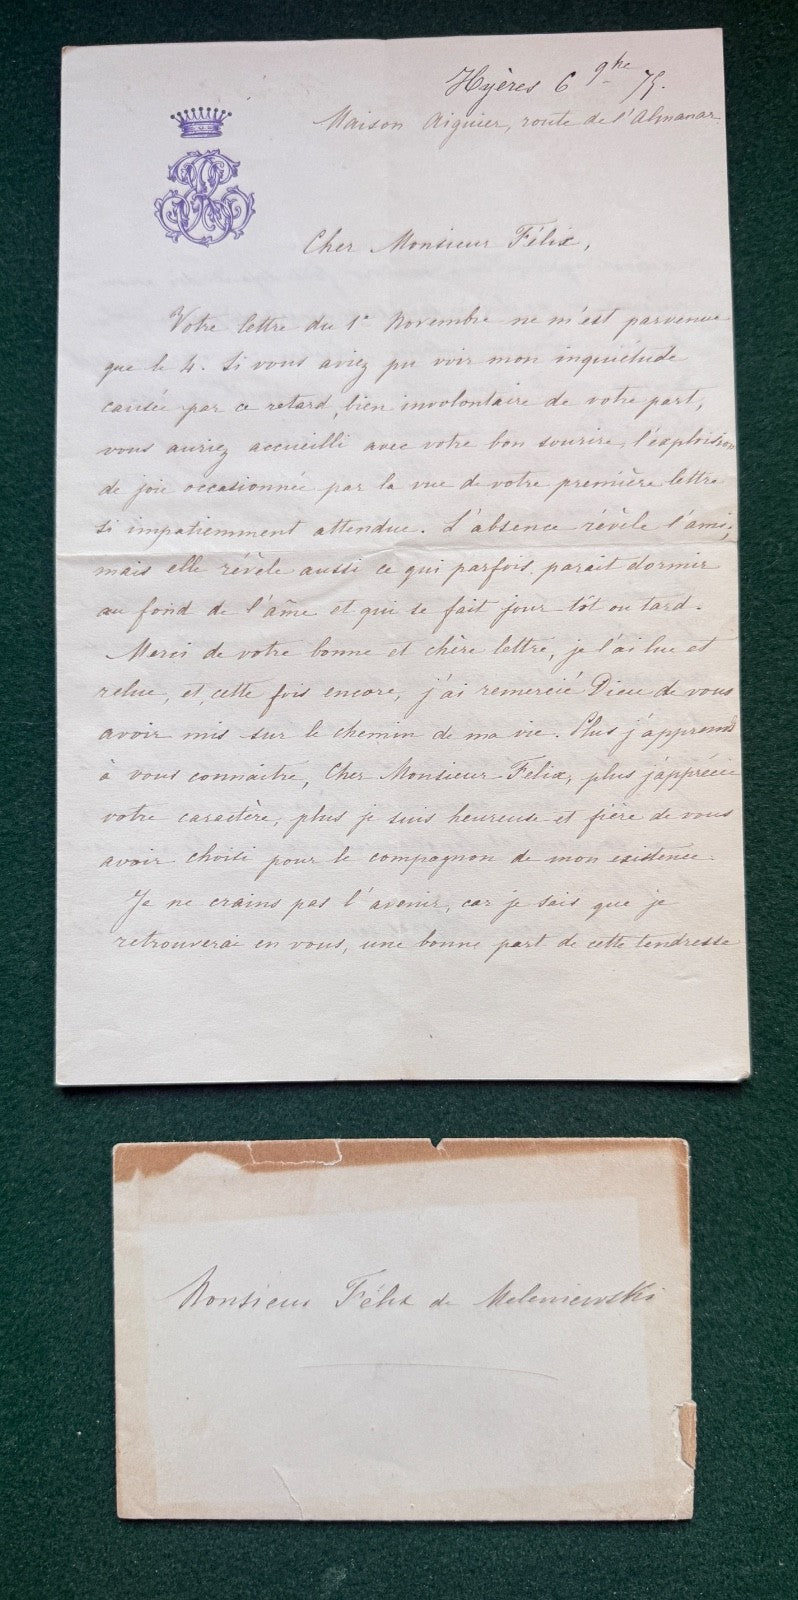 Hyères 6 9bre 75.
Maison Aiguier, route de l'Almanar.
Cher Monsieur Félix,
Votre lettre du 1er Novembre ne m'est parvenue
que le 4. Si vous aviez pu voir mon inquiétude
causée par ce retard, bien involontaire de votre part,
vous auriez accueilli avec votre bon sourire, l'explosion
de joie occasionnée par la vue de votre première lettre
si impatiemment attendue. L'absence révèle l'ami,
mais elle révèle aussi ce qui parfois parait dormir
au fond de l'âme et qui se fait jour tôt ou tard.
Merci de votre bonne et chère lettre, je l'ai lue et
relue, et, cette fois encore, j'ai remercié Dieu de vous
avoir mis sur le chemin de ma vie. Plus j'apprends
à vous connaître, Cher Monsieur Félix, plus j'apprécie
votre caractère, plus je suis heureuse et fière de vous
avoir choisi pour le compagnon de mon existence.
Je ne crains pas l'avenir, car je sais que je
retrouverai en vous, une bonne part de cette tendresse
Monsieur Félix de